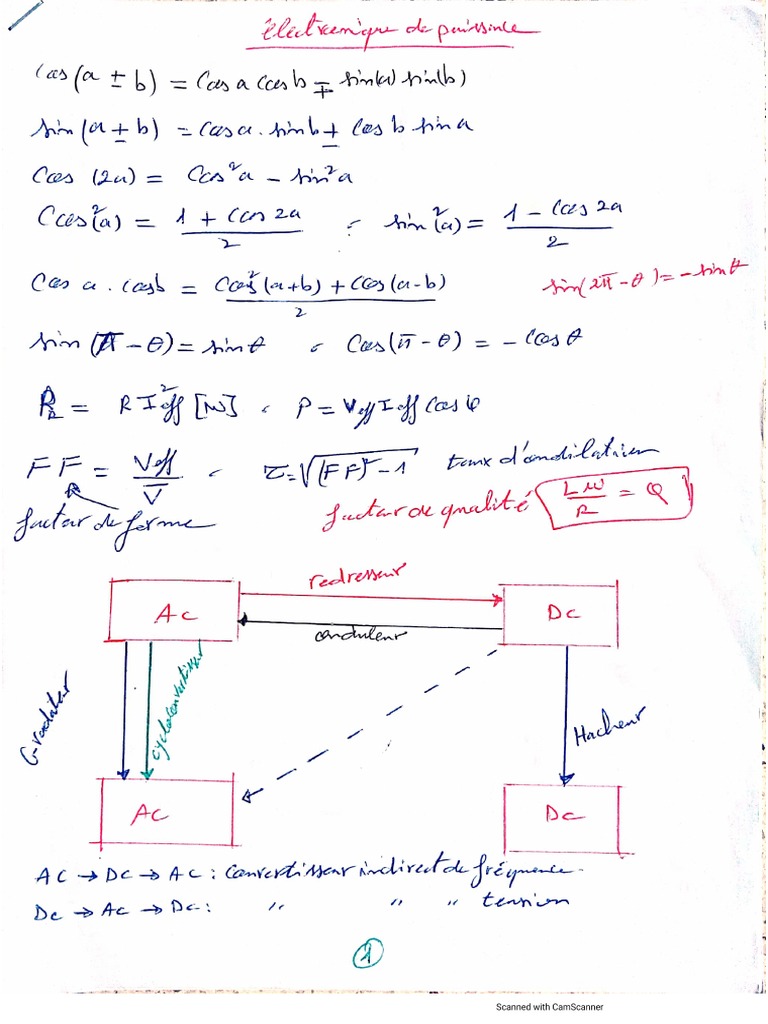 électronique de puissance
Cos(a ± b) = Cos a Cos b ∓ sin(a) sin(b)
sin(a ± b) = Cos a . sin b ± Cos b sin a
Cos (2a) = Cos²a - sin²a
Cos²(a) = (1 + Cos 2a)/2 , sin²(a) = (1 - Cos 2a)/2
Cos a . Cos b = (Cos(a+b) + Cos(a-b))/2
sin(2π - θ) = - sin θ
sin (π - θ) = sin θ , Cos(π - θ) = - Cos θ
P_R = R I²eff [W] , P = Veff Ieff Cos φ
FF = Veff/V̅ , τ = √((FF)² - 1) taux d'ondulation
facteur de forme
facteur de qualité Lω/R = Q
redresseur
AC
DC
onduleur
Gradateur
cycloconvertisseur
Hacheur
AC
DC
AC → DC → AC : Convertisseur indirect de fréquence.
DC → AC → DC : " " " tension
1
Scanned with CamScanner